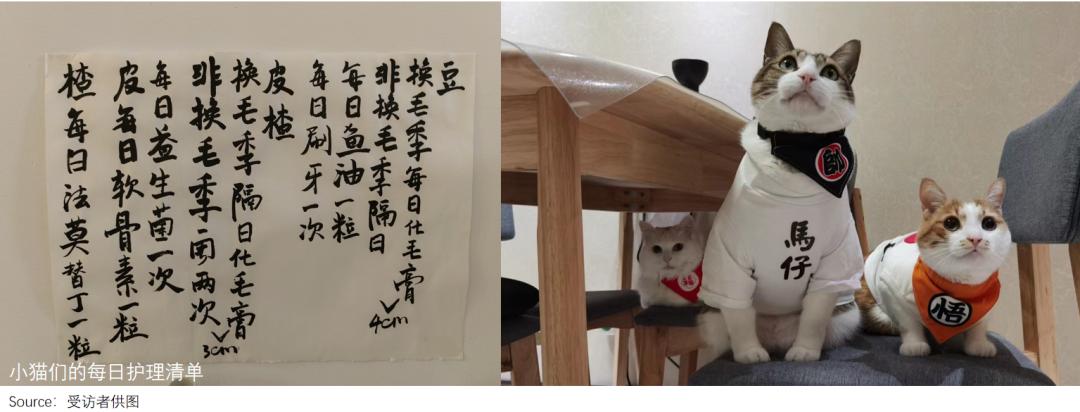 豆
换毛季每日化毛膏
4cm
非换毛季隔日
每日鱼油一粒
每日刷牙一次
皮楂
换毛季隔日化毛膏
3cm
非换毛季周两次
每日益生菌一次
皮每日软骨素一粒
楂每日法莫替丁一粒
小猫们的每日护理清单
福
帥
馬仔
悟
Source: 受访者供图